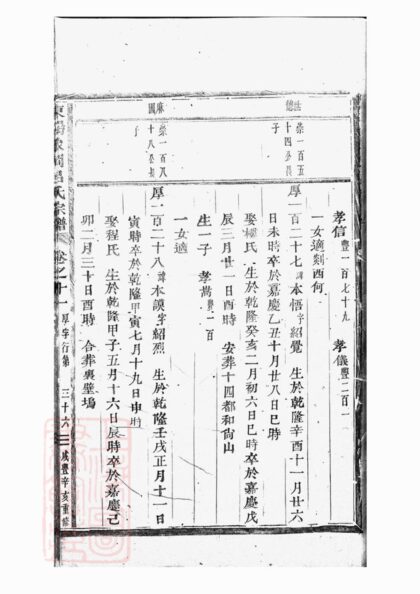 孝信 豐一百七十九 孝儀 豐二百一
一女適剡西何
世德
崇一百五十四公長子
厚一百二十七 諱本悟 字紹覺 生於乾隆辛酉十一月廿六
日未時卒於嘉慶乙丑十月廿八日巳時
娶樓氏 生於乾隆癸亥二月初六日巳時卒於嘉慶戊
辰三月廿一日酉時 安葬十四都和尚山
生一子 孝嵩 豐一百
一女適
麻園
崇一百八十八公長子
厚一百二十八 諱本謨 字紹烈 生於乾隆壬戌正月十一日
寅時卒於乾隆甲寅七月十九日申時
娶程氏 生於乾隆甲子五月十六日辰時卒於嘉慶己
卯二月三十日酉時 合葬裏壁塢
東陽 呂氏宗譜 卷之十一 厚字行第 三十六 咸豐辛亥重修